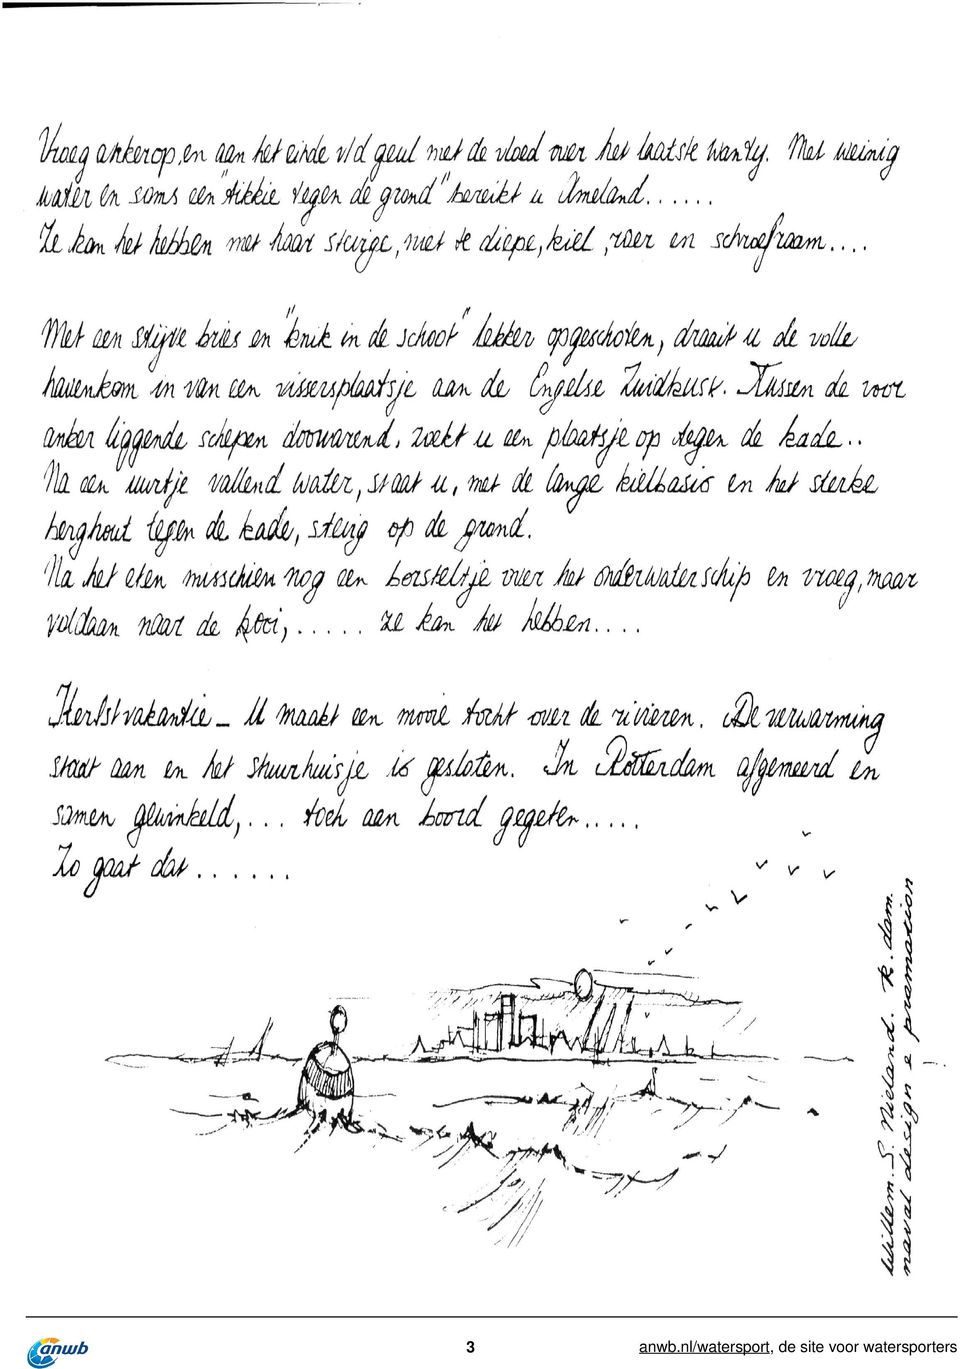 Vroeg ankerop, en aan het einde v/d geul met de vloed over het laatste wanty. Met weinig
water en soms een "tikkie tegen de grond" bereikt u Ameland......
Ze kan het hebben met haar stevige, niet te diepe, kiel, roer en schroefraam....
Met een stijve bries en "knik in de schoot" lekker opgeschoten, draait u de volle
havenkom in van een vissersplaatsje aan de Engelse Zuidkust. Tussen de voor
anker liggende schepen doorvarend, zoekt u een plaatsje op tegen de kade..
Na een uurtje vallend water, staat u, met de lange kielbasis en het sterke
berghout tegen de kade, stevig op de grond.
Na het eten misschien nog een borsteltje over het onderwaterschip en vroeg, maar
voldaan naar de kooi,..... ze kan het hebben....
Herfstvakantie - U maakt een mooie tocht over de rivieren. De verwarming
staat aan en het stuurhuisje is gesloten. In Rotterdam afgemeerd en
samen gewinkeld,... toch aan boord gegeten.....
Zo gaat dat......
Willem. S. Nieland. R.dam.
naval design & promotion
anwb
3
anwb.nl/watersport, de site voor watersporters